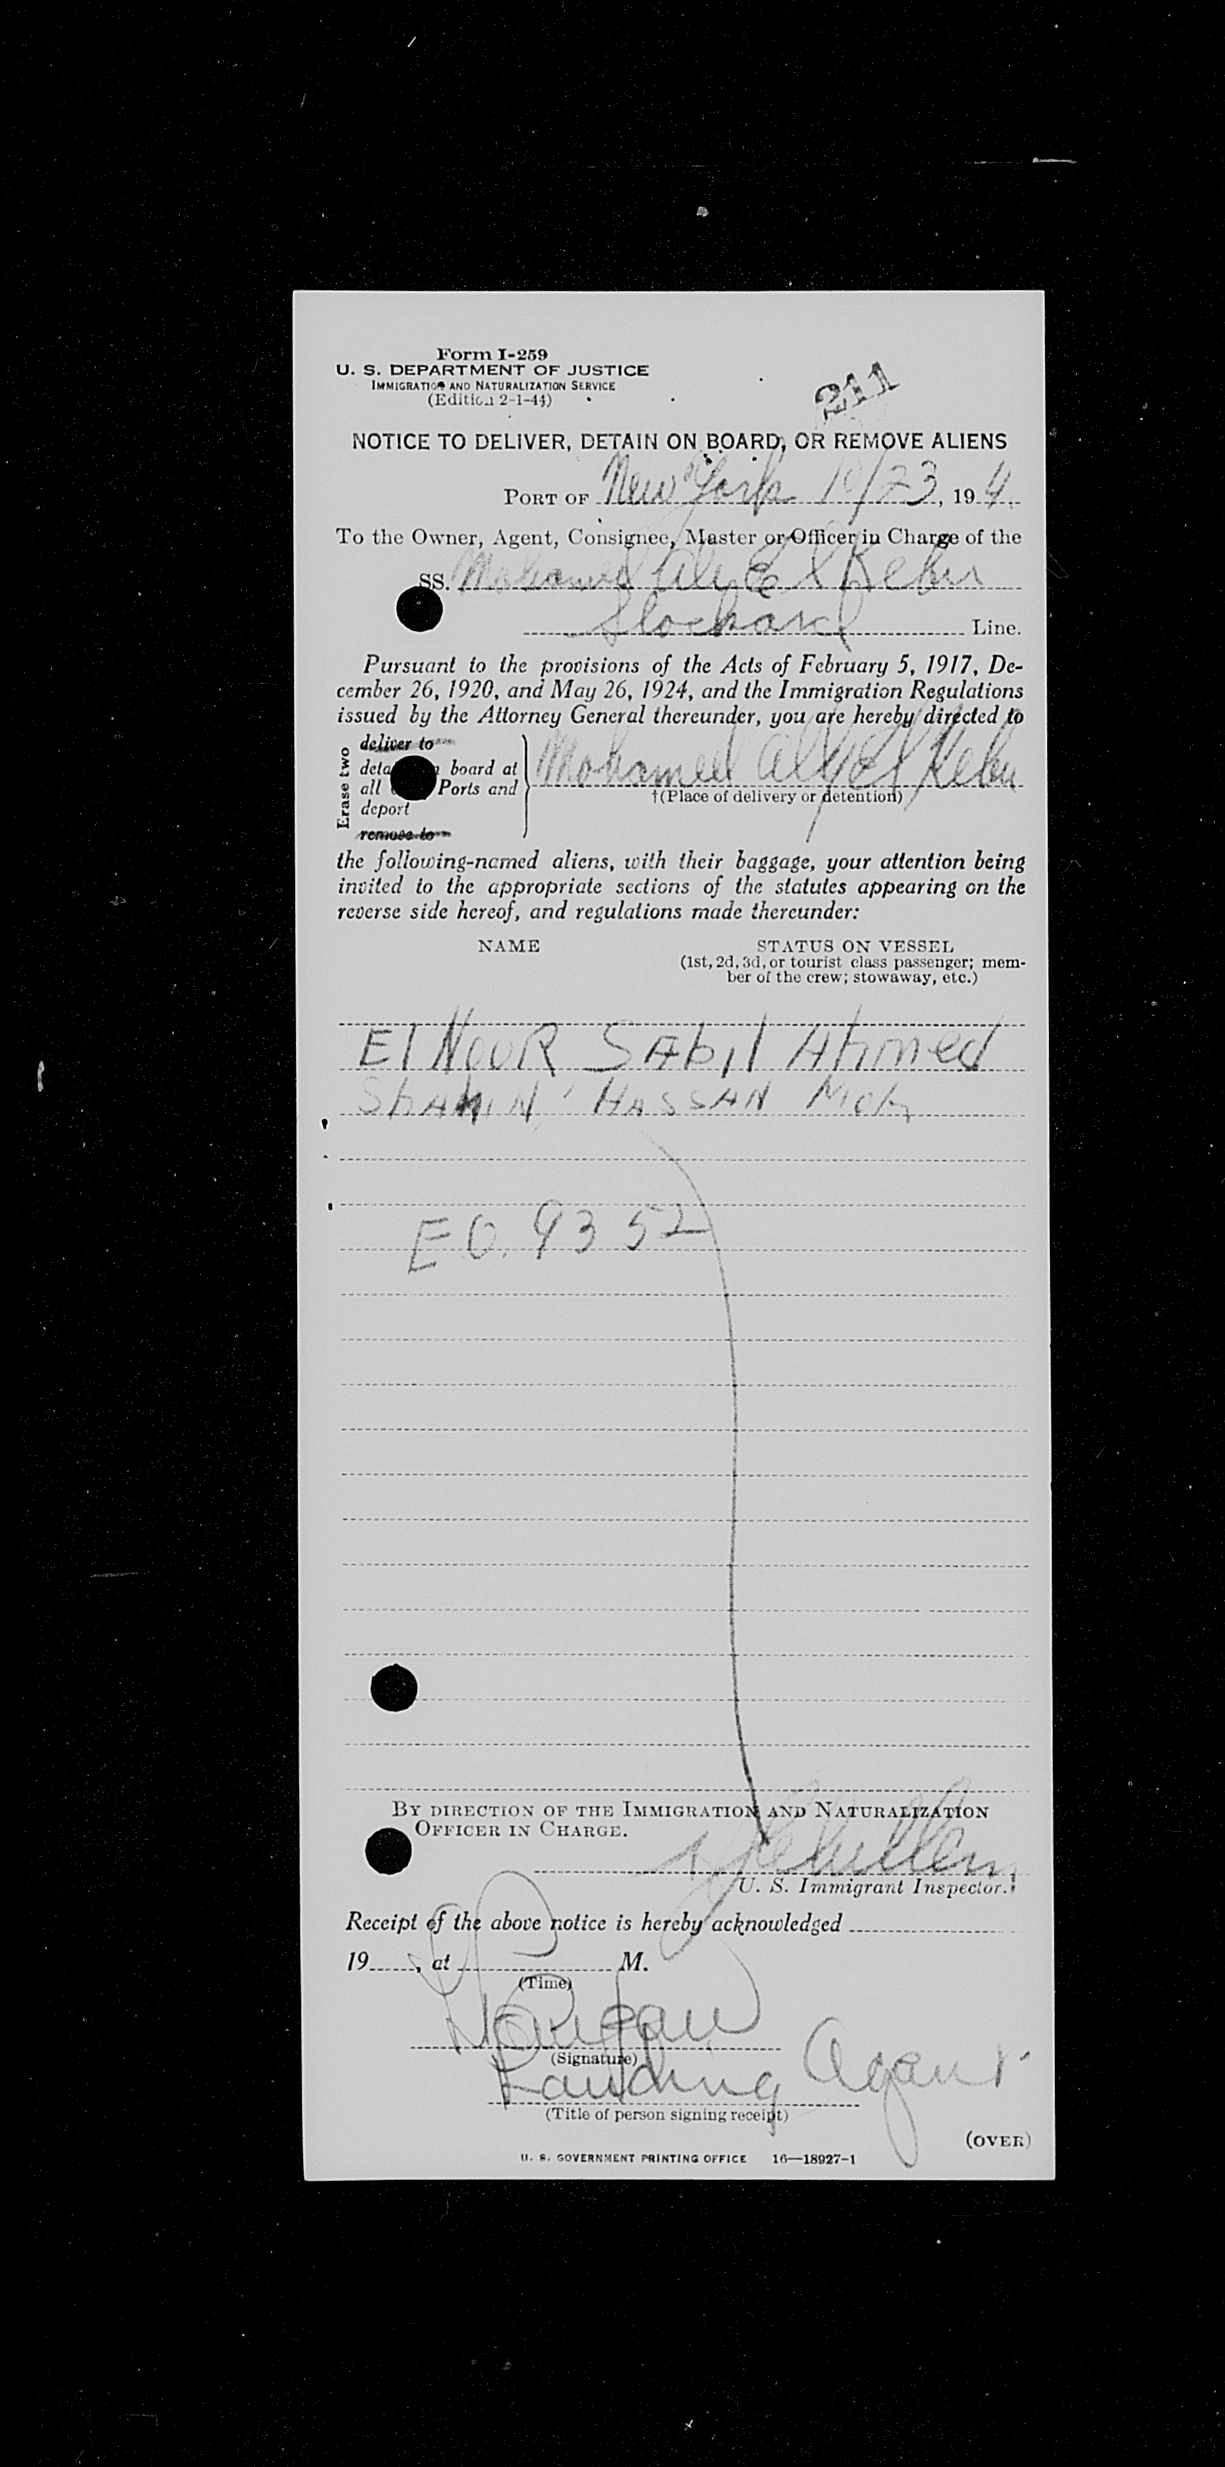 Form I-259
U. S. DEPARTMENT OF JUSTICE
IMMIGRATION AND NATURALIZATION SERVICE
(Edition 2-1-44)
211
NOTICE TO DELIVER, DETAIN ON BOARD, OR REMOVE ALIENS
PORT OF New York 10/23, 194
To the Owner, Agent, Consignee, Master or Officer in Charge of the
SS. Mohamed Aly El Kebir
Line.
Pursuant to the provisions of the Acts of February 5, 1917, De-
cember 26, 1920, and May 26, 1924, and the Immigration Regulations
issued by the Attorney General thereunder, you are hereby directed to
Erase two
deliver to
board at
all Ports and
deport
remove to
Mohamed Aly El Kebir
†(Place of delivery or detention)
the following-named aliens, with their baggage, your attention being
invited to the appropriate sections of the statutes appearing on the
reverse side hereof, and regulations made thereunder:
NAME STATUS ON VESSEL
(1st, 2d, 3d, or tourist class passenger; mem-
ber of the crew; stowaway, etc.)
El NOUR SAbil Ahmed
ShAHIN, HASSAN Moh
E O. 9352
BY DIRECTION OF THE IMMIGRATION AND NATURALIZATION
OFFICER IN CHARGE.
U. S. Immigrant Inspector.
Receipt of the above notice is hereby acknowledged
19 , at M.
(Time)
(Signature)
Landing Agent
(Title of person signing receipt)
(OVER)
U. S. GOVERNMENT PRINTING OFFICE 16—18927-1